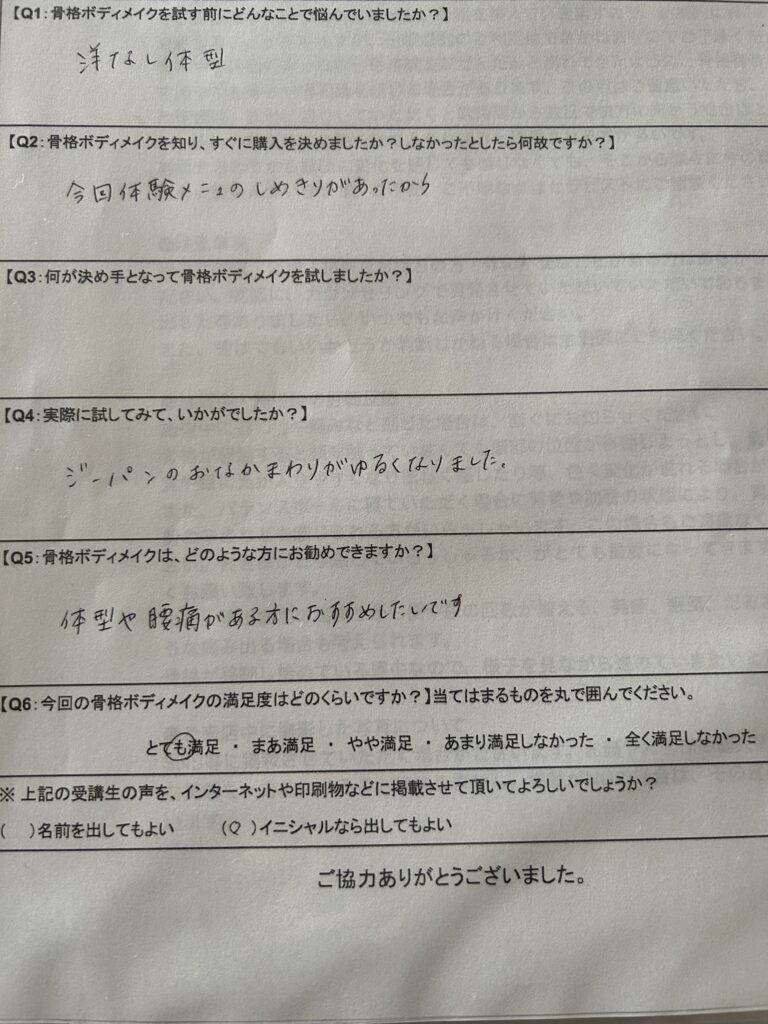 【Q1：骨格ボディメイクを試す前にどんなことで悩んでいましたか？】
洋なし体型
【Q2：骨格ボディメイクを知り、すぐに購入を決めましたか？しなかったとしたら何故ですか？】
今回体験メニュのしめきりがあったから
【Q3：何が決め手となって骨格ボディメイクを試しましたか？】
【Q4：実際に試してみて、いかがでしたか？】
ジーパンのおなかまわりがゆるくなりました。
【Q5：骨格ボディメイクは、どのような方にお勧めできますか？】
体型や腰痛がある方におすすめしたいです
【Q6：今回の骨格ボディメイクの満足度はどのくらいですか？】当てはまるものを丸で囲んでください。
とても満足 ・ まあ満足 ・ やや満足 ・ あまり満足しなかった ・ 全く満足しなかった
※ 上記の受講生の声を、インターネットや印刷物などに掲載させて頂いてよろしいでしょうか？
(　)名前を出してもよい　　(○)イニシャルなら出してもよい
ご協力ありがとうございました。